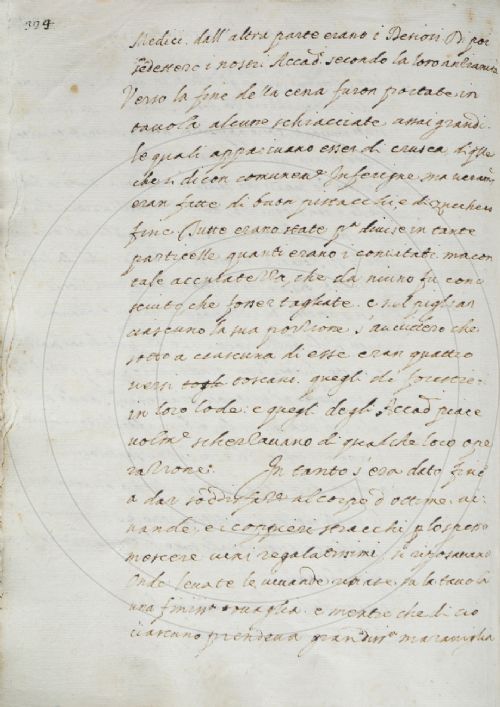 324
Medici. dall'altra parte erano i Benori. Di poi
sedettero i nostri Accad. secondo la loro
Verso la fine della cena furon portate in
tavola alcune schiacciate assai grandi
le quali apparivano esser di crusca, di
che si dicon comunem.
eran fatte di buon pistacchi, e di zucchero
fine Tutte erano state p.a divise in tante
particelle quanti erano i convitati ma con
tale accuratezza, che da niuno fu cono
sciuto che fosser tagliate. e nel pigliar
ciascuno la sua porzione s'avvidero che
sotto a ciascuna di esse eran quattro
versi toscani. quegli de forestieri
in loro lode: e quegli degli Accad. piace
volm.e scherzavano di qualche loro ope
razione. In tanto s'era dato fine
a dar soddisfaz.e al corpo d'ottime vi
vande. e i coppieri stracchi p lo spesso
mescere vini regalatissimi si riposavano
Onde levate le vivande rimase su la tavola
una finiss.a tovaglia. e mentre che di ciò
ciascuno prendeva grandiss.a maraviglia